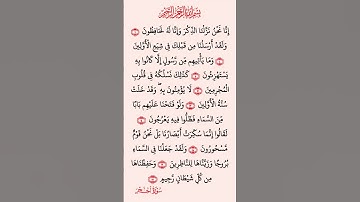 بِسْمِ اللَّهِ الرَّحْمَٰنِ الرَّحِيمِ
إِنَّا نَحْنُ نَزَّلْنَا الذِّكْرَ وَإِنَّا لَهُ لَحَافِظُونَ
وَلَقَدْ أَرْسَلْنَا مِن قَبْلِكَ فِي شِيَعِ الْأَوَّلِينَ
وَمَا يَأْتِيهِم مِّن رَّسُولٍ إِلَّا كَانُوا بِهِ
يَسْتَهْزِئُونَ كَذَٰلِكَ نَسْلُكُهُ فِي قُلُوبِ
الْمُجْرِمِينَ لَا يُؤْمِنُونَ بِهِ وَقَدْ خَلَتْ
سُنَّةُ الْأَوَّلِينَ وَلَوْ فَتَحْنَا عَلَيْهِم بَابًا
مِّنَ السَّمَاءِ فَظَلُّوا فِيهِ يَعْرُجُونَ
لَقَالُوا إِنَّمَا سُكِّرَتْ أَبْصَارُنَا بَلْ نَحْنُ قَوْمٌ
مَّسْحُورُونَ وَلَقَدْ جَعَلْنَا فِي السَّمَاءِ
بُرُوجًا وَزَيَّنَّاهَا لِلنَّاظِرِينَ وَحَفِظْنَاهَا
مِن كُلِّ شَيْطَانٍ رَّجِيمٍ
سُورَةُ الحِجْر